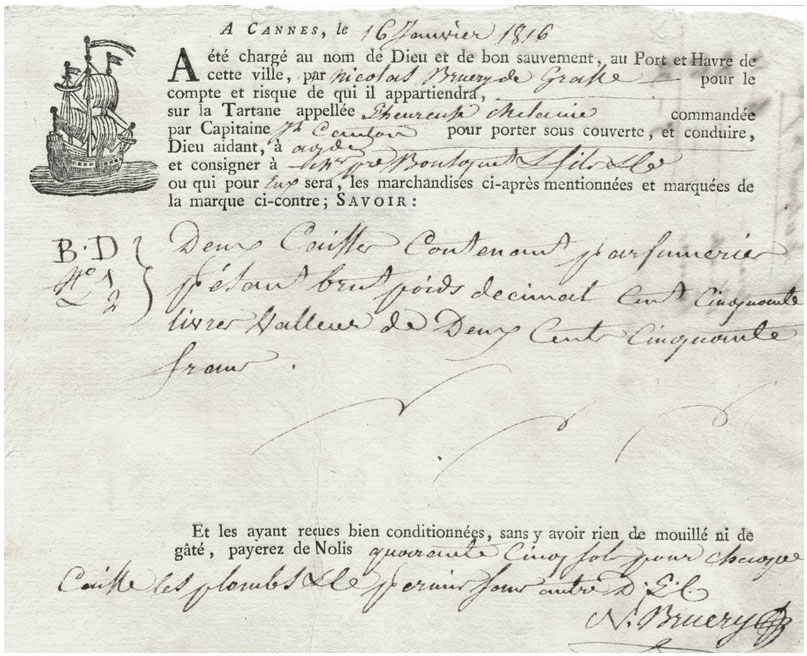 A CANNES, le 16 Janvier 1816
A été chargé au nom de Dieu et de bon sauvement, au Port et Havre de
cette ville, par Nicolas Bruery de Grasse pour le
compte et risque de qui il appartiendra,
sur la Tartane appellée L'heureuse commandée
par Capitaine pour porter sous couverte, et conduire,
Dieu aidant, à agde
et consigner à & fils &
ou qui pour Eux sera, les marchandises ci-après mentionnées et marquées de
la marque ci-contre; SAVOIR:
B·D
N° 1
2
Deux Caisses Contenant parfumeries
pésant brut poids decimal Cent Cinquante
livres Valleur de Deux Cents Cinquante
francs.
Et les ayant reçues bien conditionnées, sans y avoir rien de mouillé ni de
gâté, payerez de Nolis quarante Cinq sols pour chaque
Caisse les plombs & le permis sans autre
N. Bruery